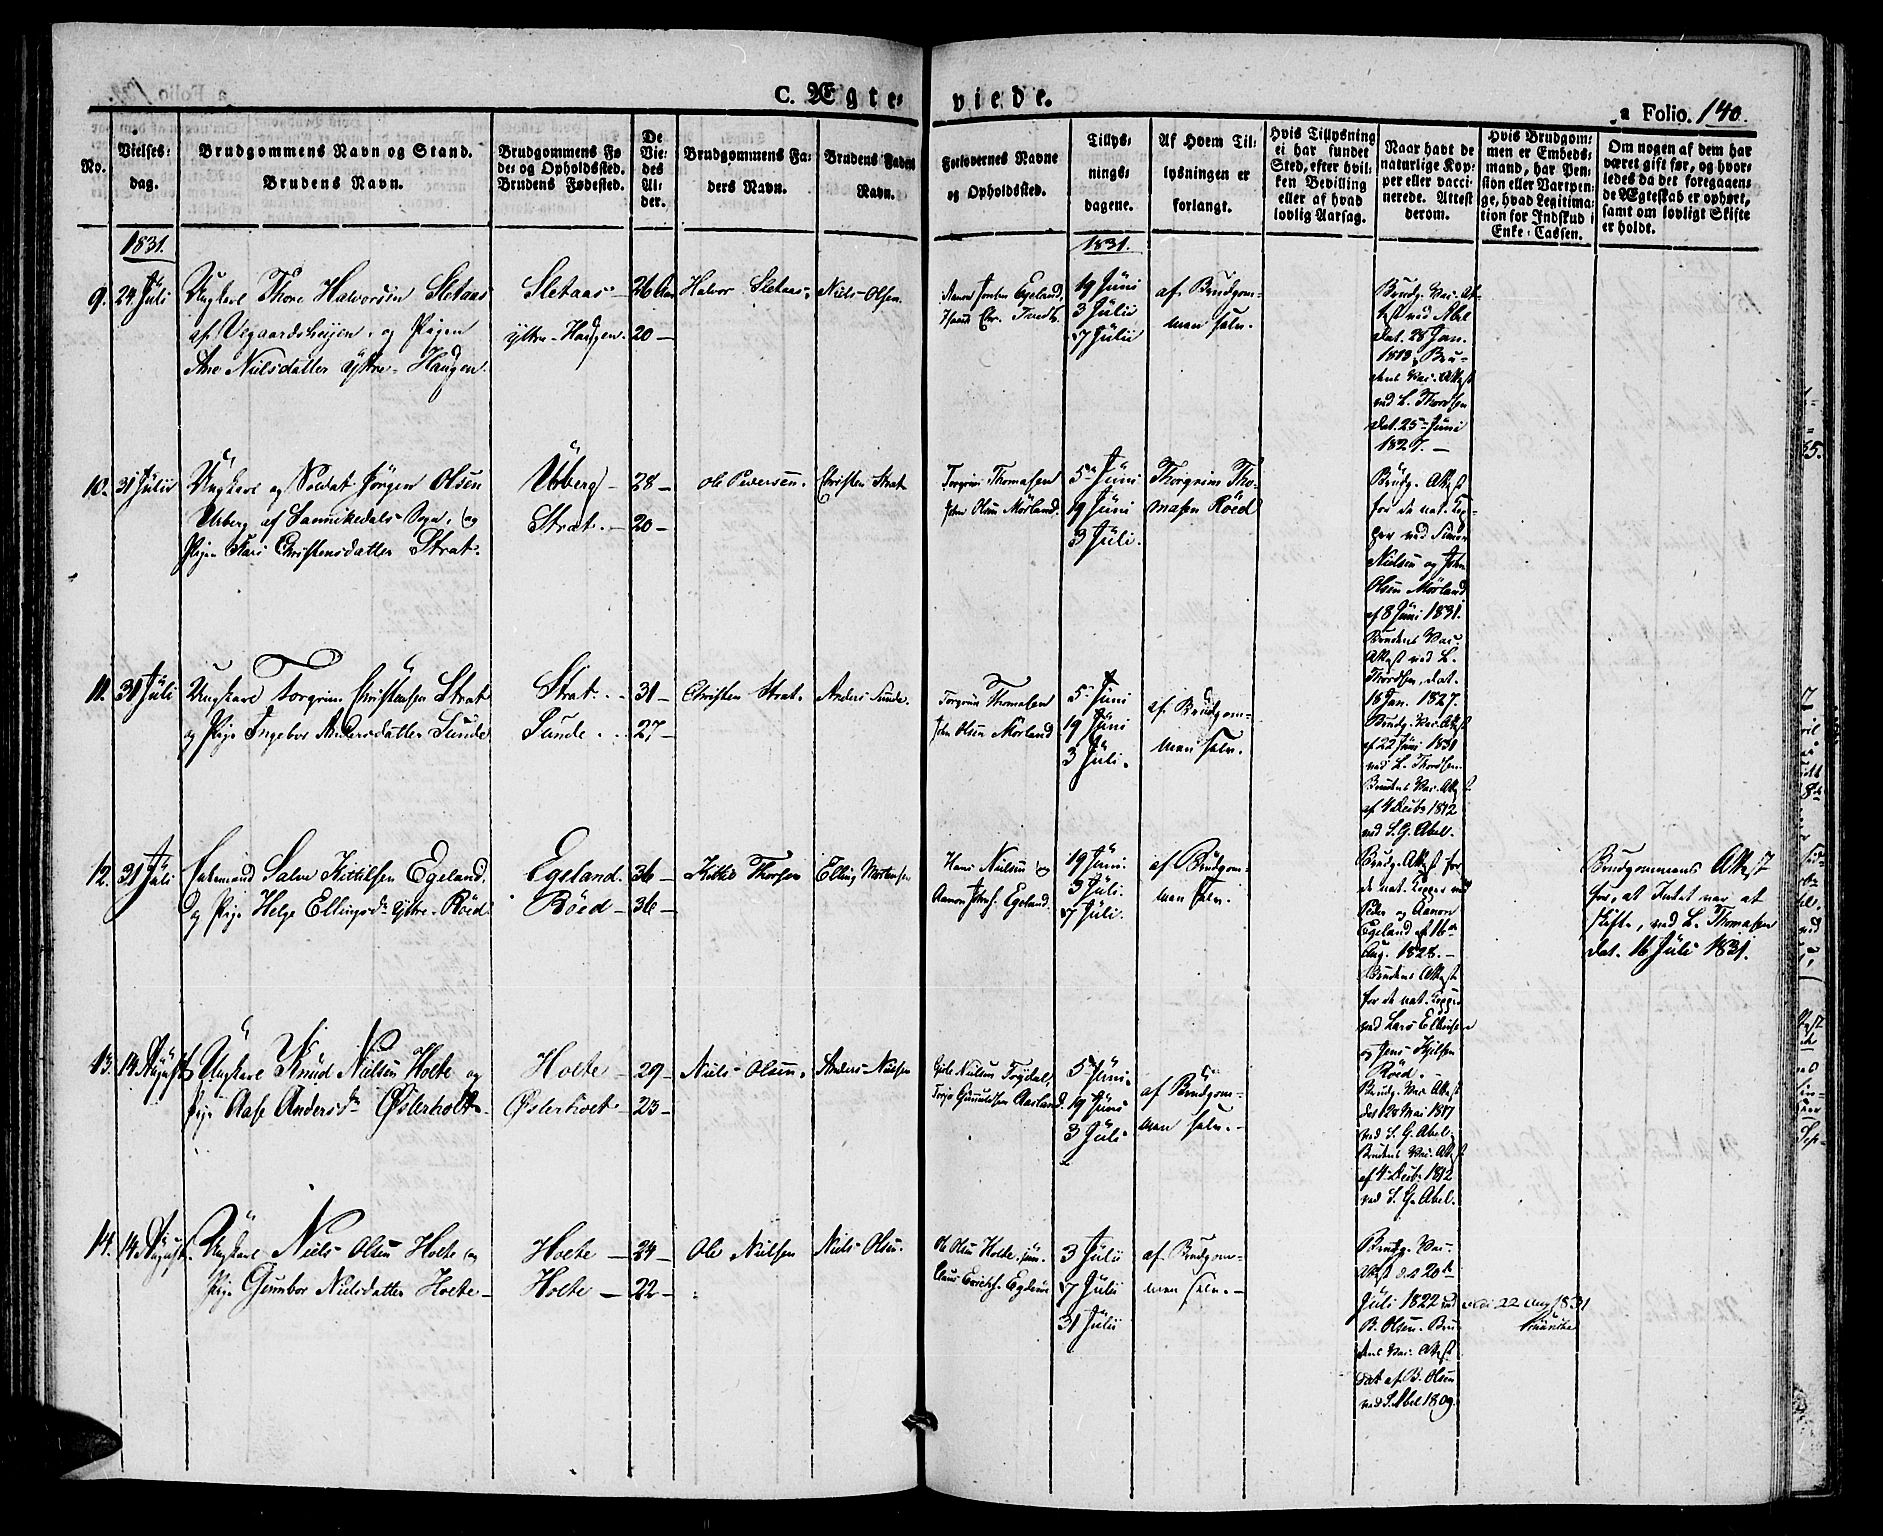 C. Ægte-
viede.
a Folio. 140.
No.
Vielses-
dag.
Brudgommens Navn og Stand.
Brudens Navn.
Brudgommens Fø
de- og Opholdssted.
Brudens Fødested.
De
Vie-
des
Al-
der.
Brudgommens Fa-
ders Navn.
Brudens Faders
Navn.
Forlovernes Navne
og Opholdssted.
Tillys-
nings-
dagene.
Af Hvem Til-
lysningen er
forlangt.
Hvis Tillysning
ei har fundet
Sted, efter hvil-
ken Bevilling
eller af hvad
lovlig Aarsag.
Naar havt de
naturlige Kop-
per eller vacci-
nerede. Attest
derom.
Hvis Brudgom-
men er Embeds-
mand, har Pen-
sion eller Vartpen-
ge, hvad Legitima-
tion for Indskud i
Enke-Cassen.
Om nogen af dem har
været gift før, og hvor-
ledes da det foregaaen-
de Ægteskab er ophørt,
samt om lovligt Skifte
er holdt.
1831.
1831.
9. 24 Juli
Ungkarl Thore Halvorsen Sletaas
af Vegaardsheien, og Pigen
Ane Nielsdatter Yttre-Haugen.
Sletaas
Yttre-Haugen.
26 Aar
20
Halvor Sletaas.
Niels Olsen.
Aanon Egeland,
19 Juni
3 Julii
17 Julii
af Brudgom-
men selv.
Brudg. Vac. At-
test ved Abel
dat. 28 Jan.
1813. Bru-
dens Vac. Attest
ved L. Thordsen
dat. 25 Juni
1827.
10. 31 Julii
Ungkarl og Soldat Jørgen Olsen
Urberg af Sannikedals Sogn, og
Pigen Kari Christensdatter Strat.
Urberg
Strat.
28
20
Ole Pedersen.
Christen Strat
Torgrim Thomasen
John Olsen Mørland.
5 Juni
19 Juni
3 Juli.
Thorgrim Tho-
masen Röed
Brudg. Attest
for de nat. Kop-
per ved Simon
Nielsen og John
Olsen Mørland
af 8 Juni 1831.
Brudens Vac.
Attest ved L.
Thordsen, dat.
18 Jan. 1827.
11. 31 Juli
Ungkarl Torgrim Christensen Strat
og Pige Ingebor Andersdatter Sunde
Strat
Sunde
31
27
Christen Strat.
Anders Sunde.
Torgrim Thomasen
John Olsen Mørland
5 Juni
19 Juni
3 Juli.
af Brudgom-
men selv.
Brudg. Vac. Attest
af 22 Juni 1831
ved L. Thordsen.
Brudens Vac. Attest
af 4 Decbr 1812
ved S. G. Abel.
12. 31 Juli
Enkemand Salve Kittilsen Egeland.
og Pige Helge Ellingsdr Yttre-Röed
Egeland.
Röed
36
36
Kittil Thorsen
Elling Mortensen
Hans Nielsen og
Aanon Johns. Egeland.
19 Juni
3 Juli.
17 Juli.
af Brudgom-
men selv.
Brudg. Attest for
de nat. Kopper ved
Peder og Aanon
Egeland af 16de
Aug. 1828.
Brudens Attest
for de nat. Kopper
ved Lars Ellingsen
og Jens Kjelsen
Röed.
Brudgommens Attest
for, at Intet var at
skifte, ved L. Thomasen
dat. 16 Juli 1831.
13. 14 August
Ungkarl Knud Nielsen Holte og
Pige Aase Andersdr Østerholt
Holte
Østerholt
29
23
Niels Olsen.
Anders Nielsen
5 Juni.
19 Juni
3 Juli.
af Brudgom-
men selv.
Brudg. Vac. Attest
des 20 Mai 1817
ved S. G. Abel.
Brudens Vac. Attest
af 4 Decbr 1812
ved S. G. Abel.
14. 14 August.
Ungkarl Niels Olsen Holte og
Pige Gunnbor Nielsdatter Holte
Holte
Holte
24
22
Ole Nielsen
Niels Olsen.
Ole Olsen Holte
3 Julii
17 Julii
31 Julii
af Brudgom-
men selv.
Brudg. Vac.
Attest d. 20de
Juli 1822 ved
B. Olsen. Bru-
dens Vac. Attest
ved S. Abel 1809.
22 Aug 1831